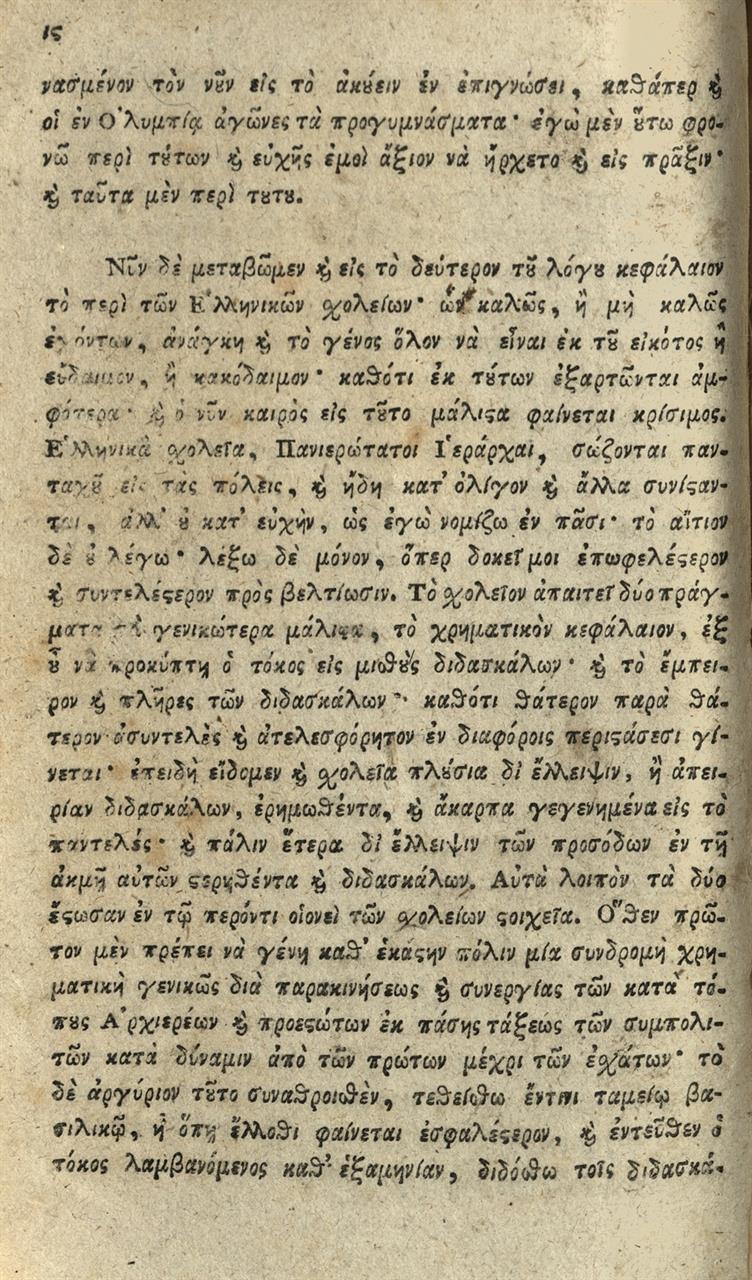 ις
νασμένον τὸν νῦν εἰς τὸ ἀκȣ́ειν ἐν ἐπιγνώσει, καθάπερ ϗ
οἱ ἐν Ὀλυμπίᾳ ἀγῶνες τὰ προγυμνάσματα· ἐγὼ μὲν ȣ̔́τω φρο-
νῶ περὶ τȣ́των ϗ εὐχῆς ἐμοὶ ἄξιον νὰ ἤρχετο ϗ εἰς πρᾶξιν·
ϗ ταῦτα μὲν περὶ τȣ́τȣ.
Νῦν δὲ μεταβῶμεν ϗ εἰς τὸ δεύτερον τȣ͂ λόγȣ κεφάλαιον
τὸ περὶ τῶν Ἑλληνικῶν σχολείων· ὧν καλῶς, ἢ μὴ καλῶς
ἐχόντων, ἀνάγκη ϗ τὸ γένος ὅλον νὰ εἶναι ἐκ τȣ͂ εἰκότος ἢ
εὔδαιμον, ἢ κακόδαιμον· καθότι ἐκ τȣ́των ἐξαρτῶνται ἀμ-
φότερα· ϗ ὁ νῦν καιρὸς εἰς τȣ͂το μάλιϛα φαίνεται κρίσιμος.
Ἑλληνικὰ σχολεῖα, Πανιερώτατοι Ἱεράρχαι, σώζονται παν-
ταχȣ͂ εἰς τὰς πόλεις, ϗ ἤδη κατ' ὀλίγον ϗ ἄλλα συνίϛαν-
ται, ἀλλ' ȣ̓ κατ' εὐχὴν, ὡς ἐγὼ νομίζω ἐν πᾶσι· τὸ αἴτιον
δὲ ȣ̓ λέγω· λέξω δὲ μόνον, ὅπερ δοκεῖ μοι ἐπωφελέϛερον
ϗ συντελέϛερον πρὸς βελτίωσιν. Τὸ σχολεῖον ἀπαιτεῖ δύο πράγ-
ματα τὰ γενικώτερα μάλιϛα, τὸ χρηματικὸν κεφάλαιον, ἐξ
ȣ̔͂ νὰ προκύπτῃ ὁ τόκος εἰς μισθȣ̀ς διδασκάλων· ϗ τὸ ἔμπει-
ρον ϗ πλῆρες τῶν διδασκάλων· καθότι θάτερον παρὰ θά-
τερον ἀσυντελὲς ϗ ἀτελεσφόρητον ἐν διαφόροις περιϛάσεσι γί-
νεται· ἐπειδὴ εἴδομεν ϗ σχολεῖα πλȣ́σια δι' ἔλλειψιν, ἢ ἀπει-
ρίαν διδασκάλων, ἐρημωθέντα, ϗ ἄκαρπα γεγενημένα εἰς τὸ
παντελές· ϗ πάλιν ἕτερα δι' ἔλλειψιν τῶν προσόδων ἐν τῇ
ἀκμῇ αὐτῶν ϛερηθέντα ϗ διδασκάλων. Αὐτὰ λοιπὸν τὰ δύο
ἔϛωσαν ἐν τῷ περόντι οἱονεὶ τῶν σχολείων ϛοιχεῖα. Ὅθεν πρῶ-
τον μὲν πρέπει νὰ γένῃ καθ' ἑκάϛην πόλιν μία συνδρομὴ χρη-
ματικὴ γενικῶς διὰ παρακινήσεως ϗ συνεργίας τῶν κατὰ τό-
πȣς Ἀρχιερέων ϗ προεϛώτων ἐκ πάσης τάξεως τῶν συμπολι-
τῶν κατὰ δύναμιν ἀπὸ τῶν πρώτων μέχρι τῶν ἐσχάτων· τὸ
δὲ ἀργύριον τȣ͂το συναθροισθὲν, τεθείσθω ἔντινι ταμείῳ βα-
σιλικῷ, ἢ ὅπῃ ἄλλοθι φαίνεται ἐσφαλέϛερον, ϗ ἐντεῦθεν ὁ
τόκος λαμβανόμενος καθ' ἑξαμηνίαν, διδόσθω τοῖς διδασκά-